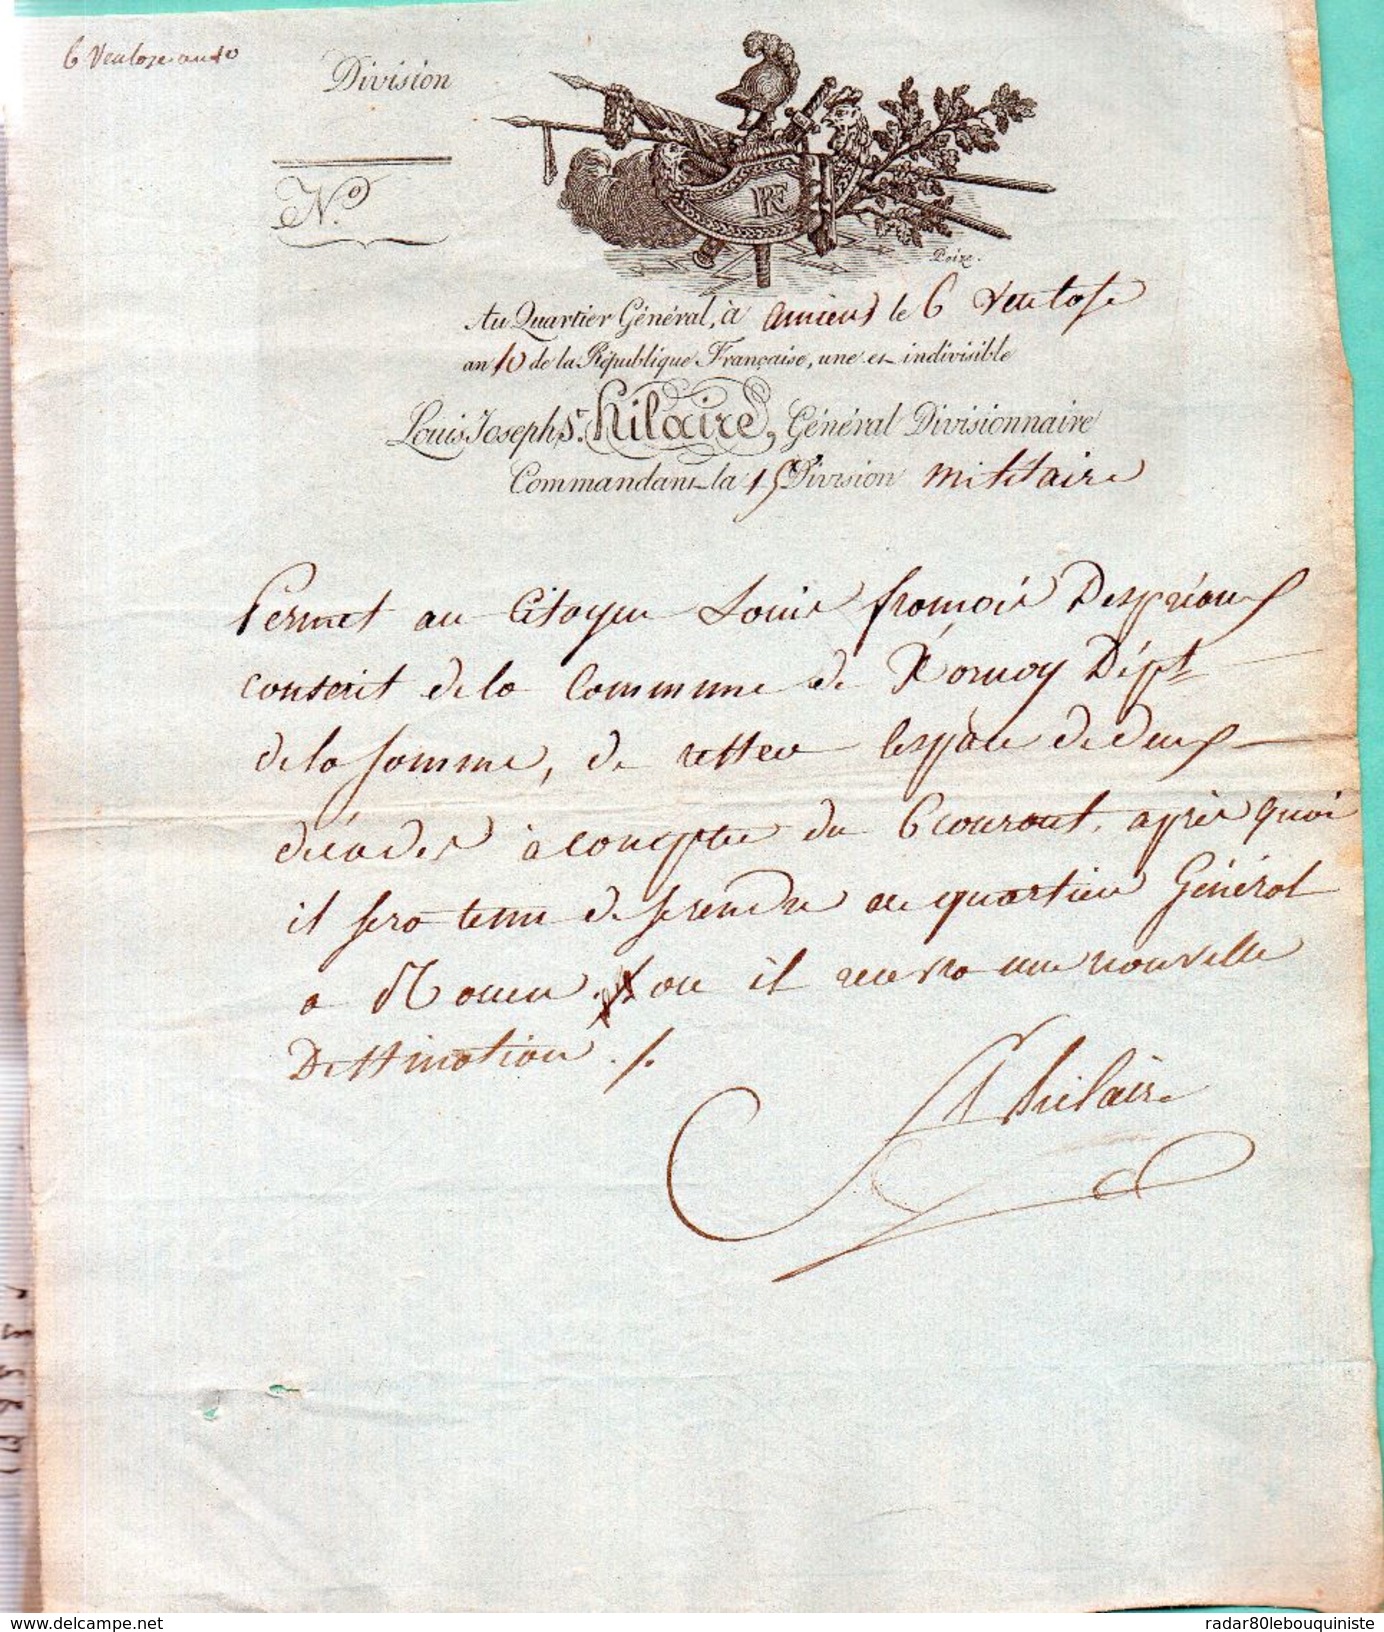 6 Ventose an 10
Division
N.º
RF
Poize.
Au Quartier Général, à amiens le 6 Ventose
an 10 de la République Française, une et indivisible
Louis Joseph St. hilaire, Général Divisionnaire
Commandant la 15e Division militaire
Permet au Citoyen Louis françois Despréaux
conscrit de la Commune de hornoy Dépt
de la somme, de rester l'espace de deux
décades à compter du 6 courant, après quoi
il sera tenu de se rendre au quartier Général
a Rouen. ou il recevra une nouvelle
Destination ./.
St hilaire
radar80lebouquiniste